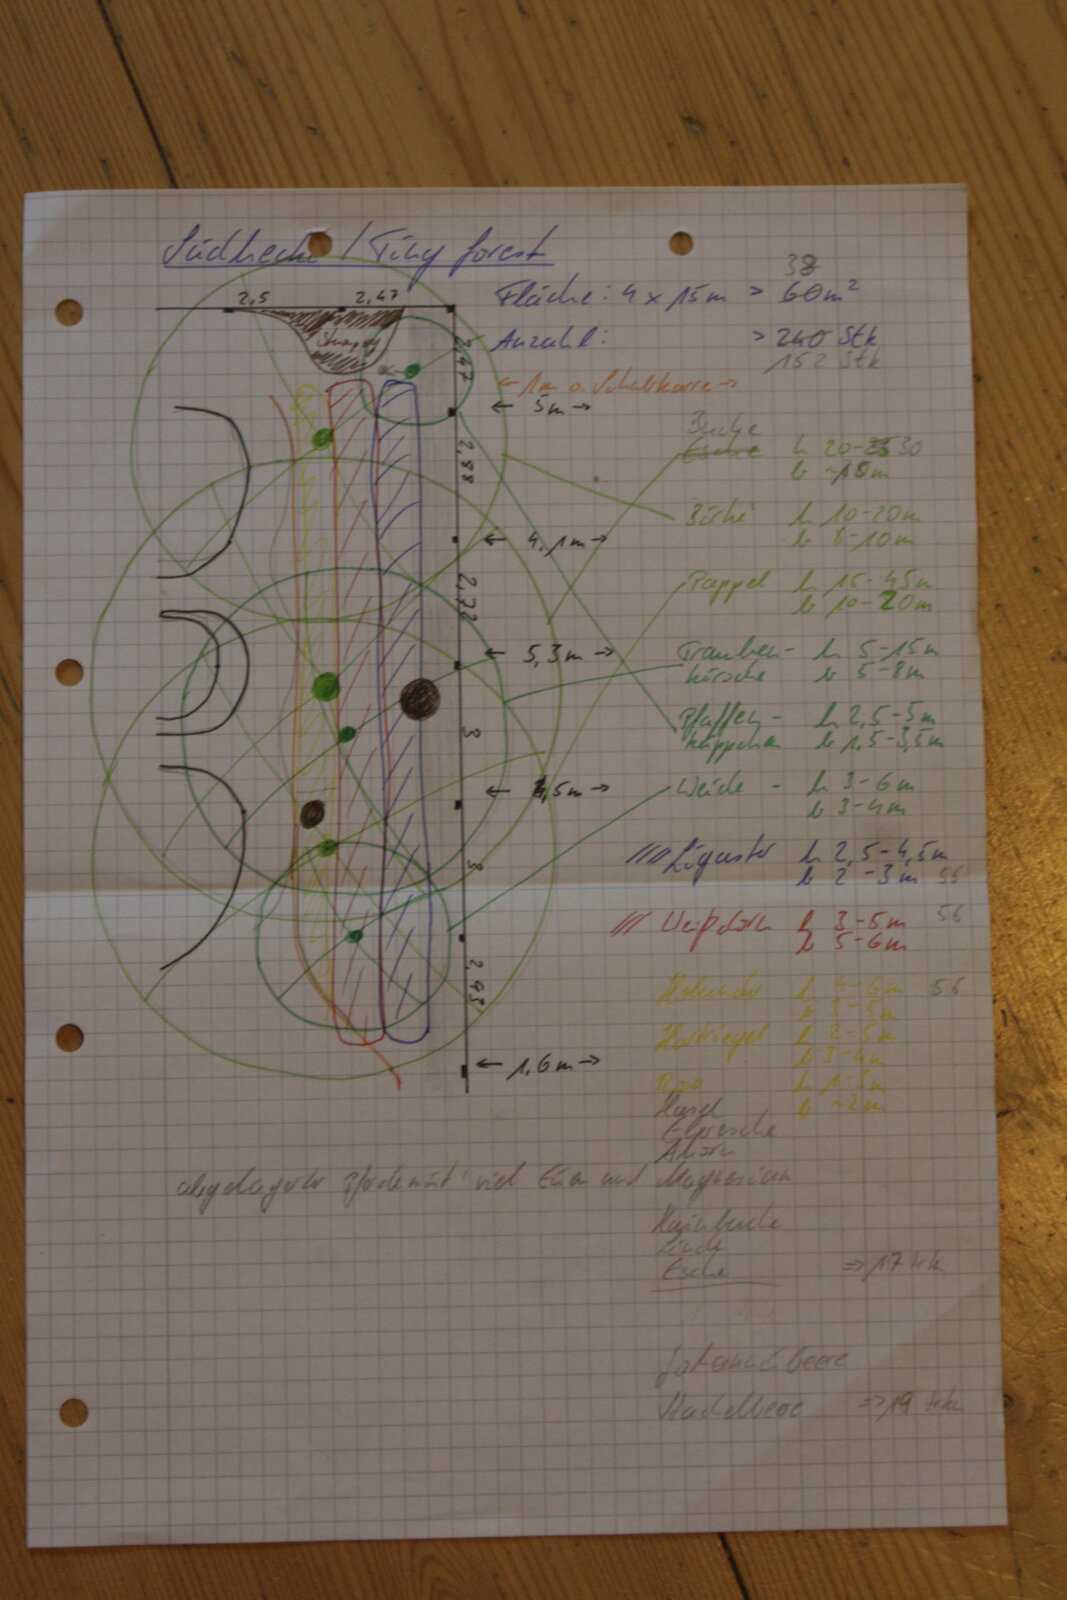 Südhecke / Tiny forest
38
Fläche: 4 x 15m > 60m²
Anzahl: > 240 Stk
152 Stk
2,5 2,47
2,47
← 1m o. Schubkarre →
← 5m →
2,88
← 4,1m →
2,72
← 5,3m →
3
← 4,5m →
3
2,93
← 1,6m →
Buche
Esche h 20-30
b ~15m
Birke h 10-20m
b 8-10m
Pappel h 15-45m
b 10-20m
Trauben- h 5-15m
kirsche b 5-8m
Pfaffen- h 2,5-5m
käppchen b 1,5-3,5m
Weide - h 3-6m
b 3-4m
Liguster h 2,5-4,5m
b 2-3m 56
Weißdorn h 3-8m 56
b 5-6m
Holunder h 4-6m 56
b 3-5m
Hartriegel h 2-5m
b 3-4m
h 1-3m
b ~2m
Hasel
Elsbeere
Ahorn
abgelagerter Pferdemist viel Eisen und Magnesium
Hainbuche
Linde
Esche => 17
Johannisbeere
Stachelbeere => 19